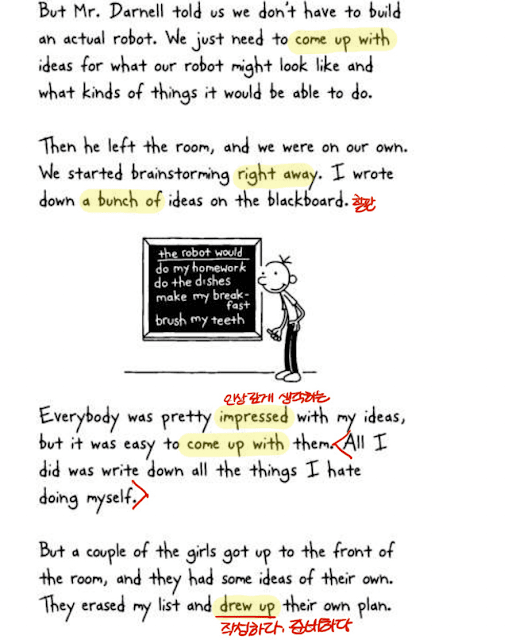 But Mr. Darnell told us we don't have to build
an actual robot. We just need to come up with
ideas for what our robot might look like and
what kinds of things it would be able to do.
Then he left the room, and we were on our own.
We started brainstorming right away. I wrote
down a bunch of ideas on the blackboard. 칠판
the robot would
do my homework
do the dishes
make my break-
fast
brush my teeth
인상깊게 생각하는
Everybody was pretty impressed with my ideas,
but it was easy to come up with them. All I
did was write down all the things I hate
doing myself.
But a couple of the girls got up to the front of
the room, and they had some ideas of their own.
They erased my list and drew up their own plan.
작성하다, 준비하다